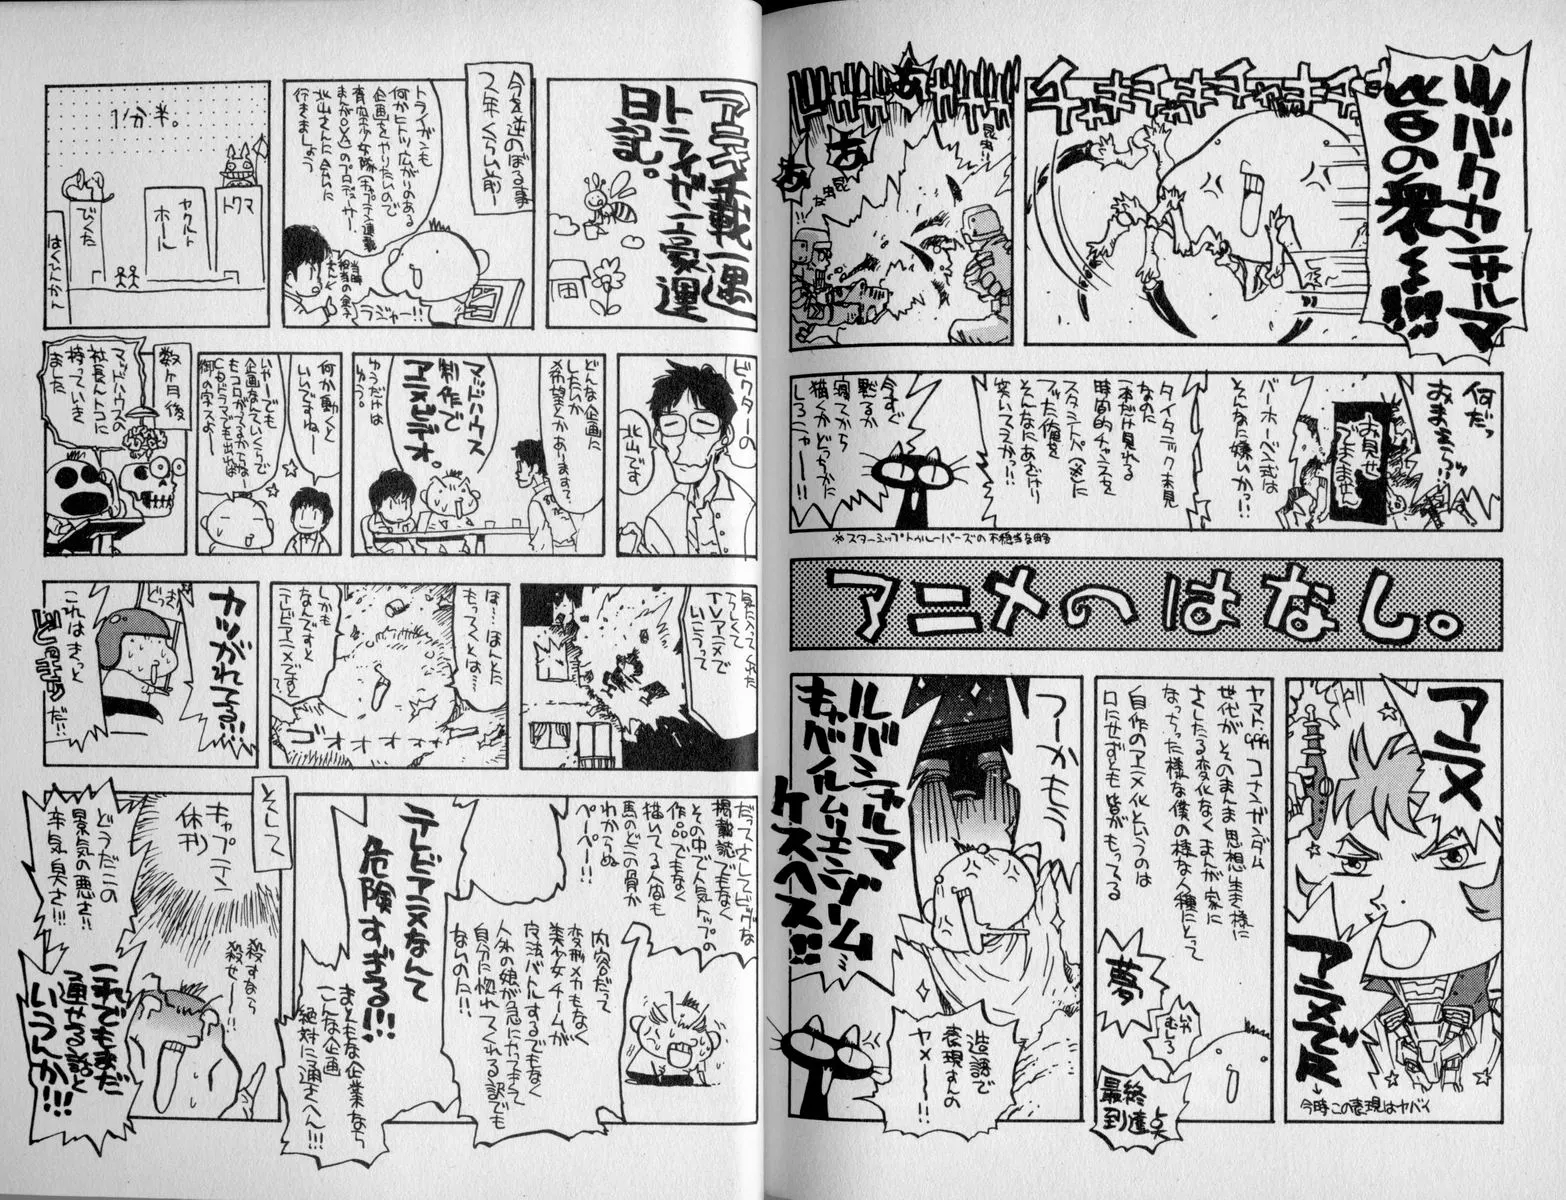 チャキチャキチャキチャキ
ツバクカンサルマ
皆の衆ぐ!!!!
あ
あ
あ
昆虫!!
昆虫
何だっ
おまえらっ!!
お見せ
できません
バーホーベン式は
そんなに嫌いかっ!!
タイタニック未見
なのに
一本だけ見れる
時間的チャンスを
スタシトペ(※)に
ブッた俺を
そんなにあざけり
笑いてえかっ!!
今すぐ
黙るか
寝てから
描くかどっちかに
しろニャーー!!
※スターシップトゥルーパーズの不穏当な略
アニメのはなし。
アニメ
アニメでㇲ
今時この表現はヤバイ
ヤマト、999、コナン、ガンダム
世代がそのまんま思想・生き様に
さしたる変化なくまんが家に
なっちった様な僕の様な人種にとって
自作のアニメ化というのは
口にせずとも皆がもってる
夢
いや
むしろ
最終
到達点
つーかもう
ルバシャルマ
キャバイルムリエンゾーム…
ケスヘス!!
造語で
表現すんの
ヤメーー!!
アニメ千載一遇
トライガン豪運
日記。
今を逆のぼる事
2年くらい前
トライガンも
何かヒトツ広がりのある
企画をやりたいので
音楽少女隊(キャプテン連載
まんがOVA)のプロデューサー、
北山さんに会いに
行きましょう
当時
担当の金子
さん
ラジャー!!
1分半。
トクマ
ヤクルト
ホール
びくた
はくひんかん
ビクターの
北山です
どんな企画に
したいか
希望とかあります?、
マッドハウス
制作で
アニメビデオ。
ゆうだけは
ゆう。
何か動くと
いいですねー
いやーでも
企画なんていくらで
もコロがってるからなー
CDドラマでも出せれば
御の字スよー
数ヶ月後
マッドハウスの
社長んトコに
持っていき
ました
気に入ってくれた
らしくて
TVアニメで
いこうって
ほ…ほんとに
もってくとは……
しかも
なんですと
テレビアニメですと
…?
ゴオォォォォォ
カツがれてる!!!
どっき
これはきっと
どっきりだ!!
だってさしてビッグな
掲載誌でもなく
その中で人気トップの
作品でもなく
描いてる人間も
馬のどこの骨か
わからぬ
ペーペー!!
内容だって
変形メカもなく
美少女チームが
魔法バトルするでもなく
人外の娘が急にヤブキって
自分に惚れてくれる訳でも
ないのに!!
テレビアニメなんて
危険すぎる!!!
まともな企業なら
こんな企画
絶対に通さへん!!!
そして
キャプテン
休刊
殺すなら
殺せーー!!
どうだこの
景気の悪さ!!
辛気臭さ!!!
これでもまだ
運せる話と
いうんか!!!